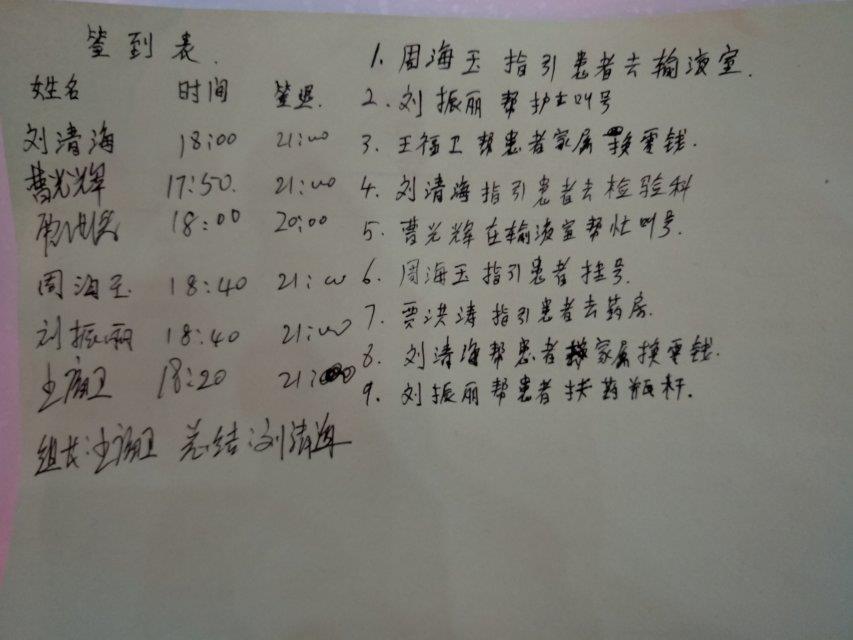 签到表.
姓名 时间 签退.
刘清海 18:00 21:00
曹光辉 17:50. 21:00
18:00 20:00
周海玉 18:40 21:00
刘振丽 18:40 21:00
王福卫 18:20 21:00
组长:王福卫 总结:刘清海
1. 周海玉指引患者去输液室.
2. 刘振丽帮护士叫号
3. 王福卫帮患者家属换零钱.
4. 刘清海指引患者去检验科
5. 曹光辉在输液室帮忙叫号.
6. 周海玉指引患者挂号.
7. 贾洪涛指引患者去药房.
8. 刘清海帮患者家属换零钱.
9. 刘振丽帮患者扶药瓶杆.